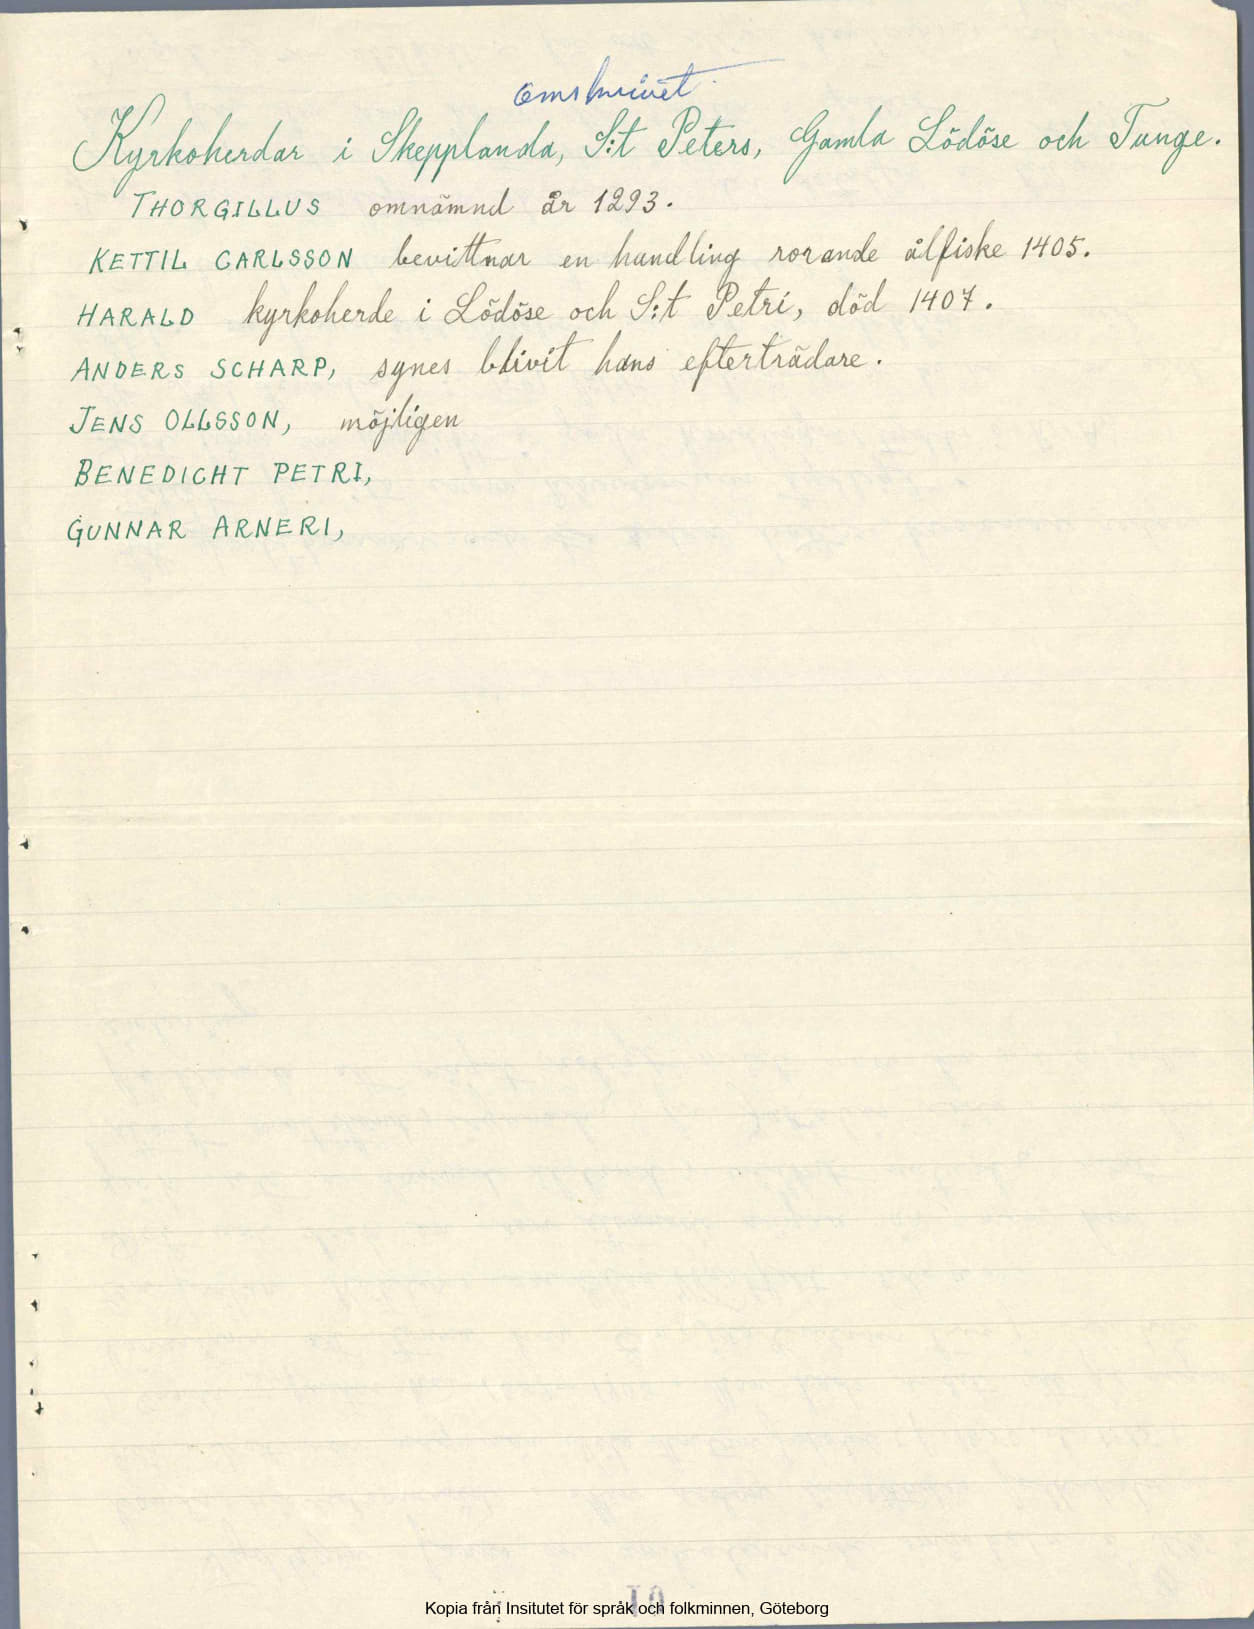 omskrivet
Kyrkoherdar i Skepplanda, S:t Peters, Gamla Lödöse och Tunge.
THORGILLUS omnämnd år 1293.
KETTIL CARLSSON bevittnar en handling rorande ålfiske 1405.
HARALD kyrkoherde i Lödöse och S:t Petri, död 1407.
ANDERS SCHARP, synes blivit hans efterträdare.
JENS OLLSSON, möjligen
BENEDICHT PETRI,
GUNNAR ARNERI,
Kopia från Insitutet för språk och folkminnen, Göteborg